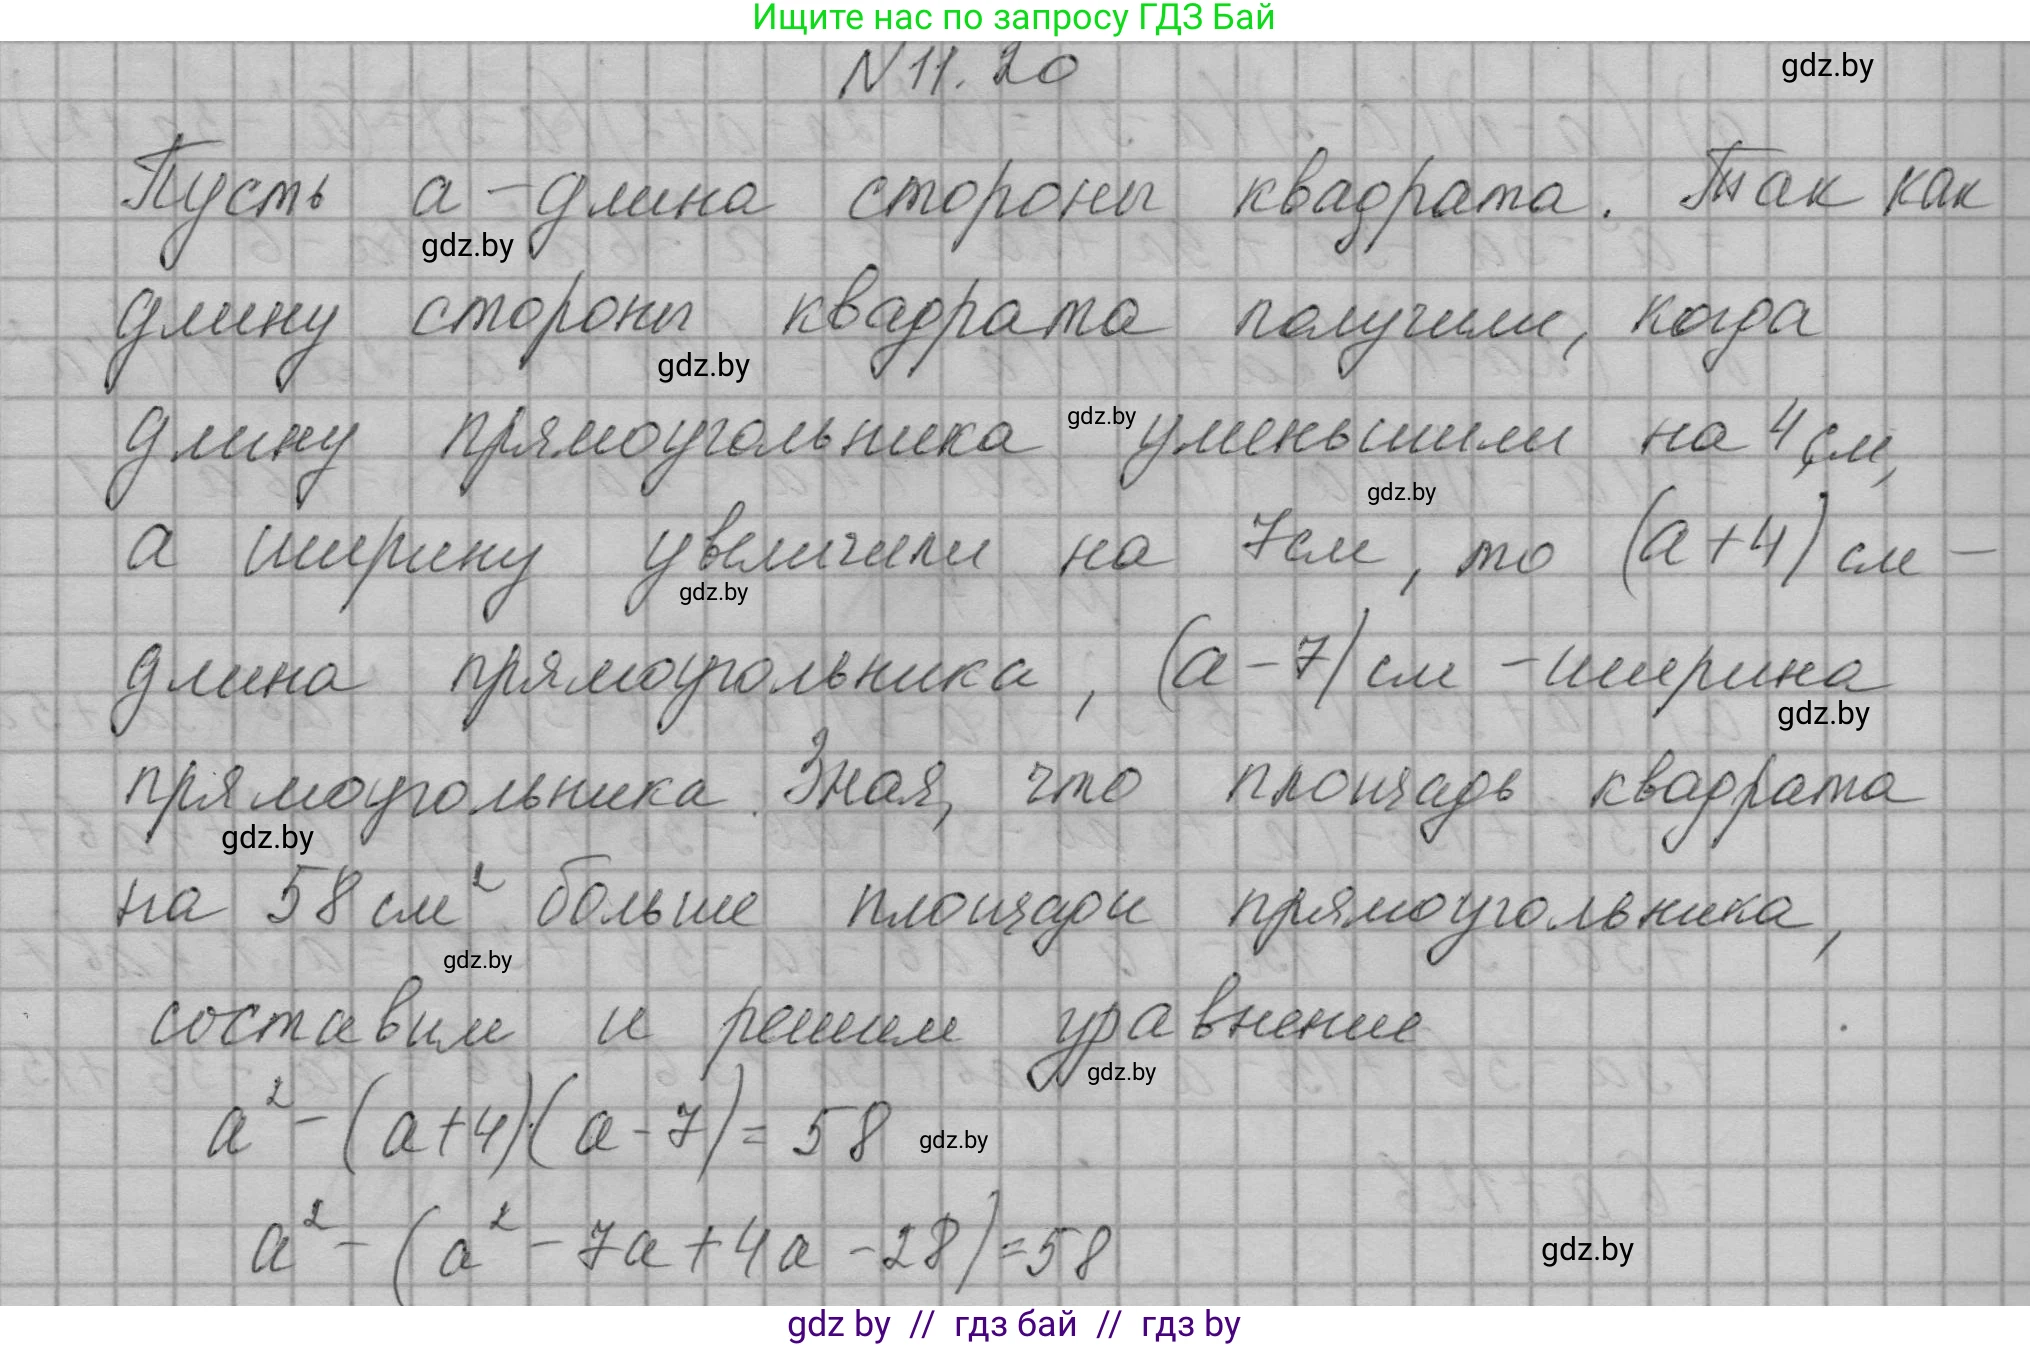 Ищите нас по запросу ГДЗ Бай
N 11.20
gdz.by
Пусть a - длина стороны квадрата. Так как
gdz.by
длину стороны квадрата получили, когда
gdz.by
длину прямоугольника уменьшили на 4 см,
gdz.by
gdz.by
а ширину увеличили на 7см, то (a+4) см -
gdz.by
длина прямоугольника, (a-7) см - ширина
gdz.by
прямоугольника. Зная, что площадь квадрата
gdz.by
на 58 см² больше площади прямоугольника,
gdz.by
составим и решим уравнение
gdz.by
a² - (a+4)·(a-7) = 58
gdz.by
a² - (a² - 7a + 4a - 28) = 58
gdz.by
gdz by // гдз бай // гдз by